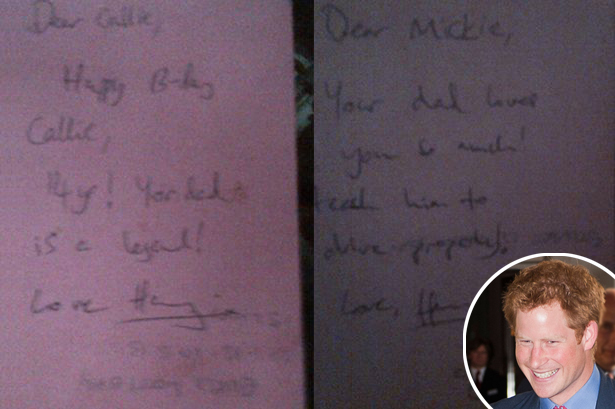 Dear Callie,
Happy B-day
Callie,
14 yr! Your dad
is a legend!
Love Harry
Dear Mickie,
Your dad loves
you so much!
teach him to
drive properly!
Love, Har